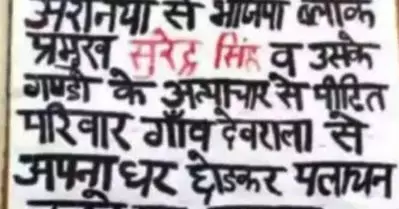 अरनिया से भाजपा ब्लाक
प्रमुख सुरेन्द्र सिंह व उसके
गुण्डो के अत्याचार से पीडित
परिवार गाँव देवराला से
अपना घर छोडकर पलायन